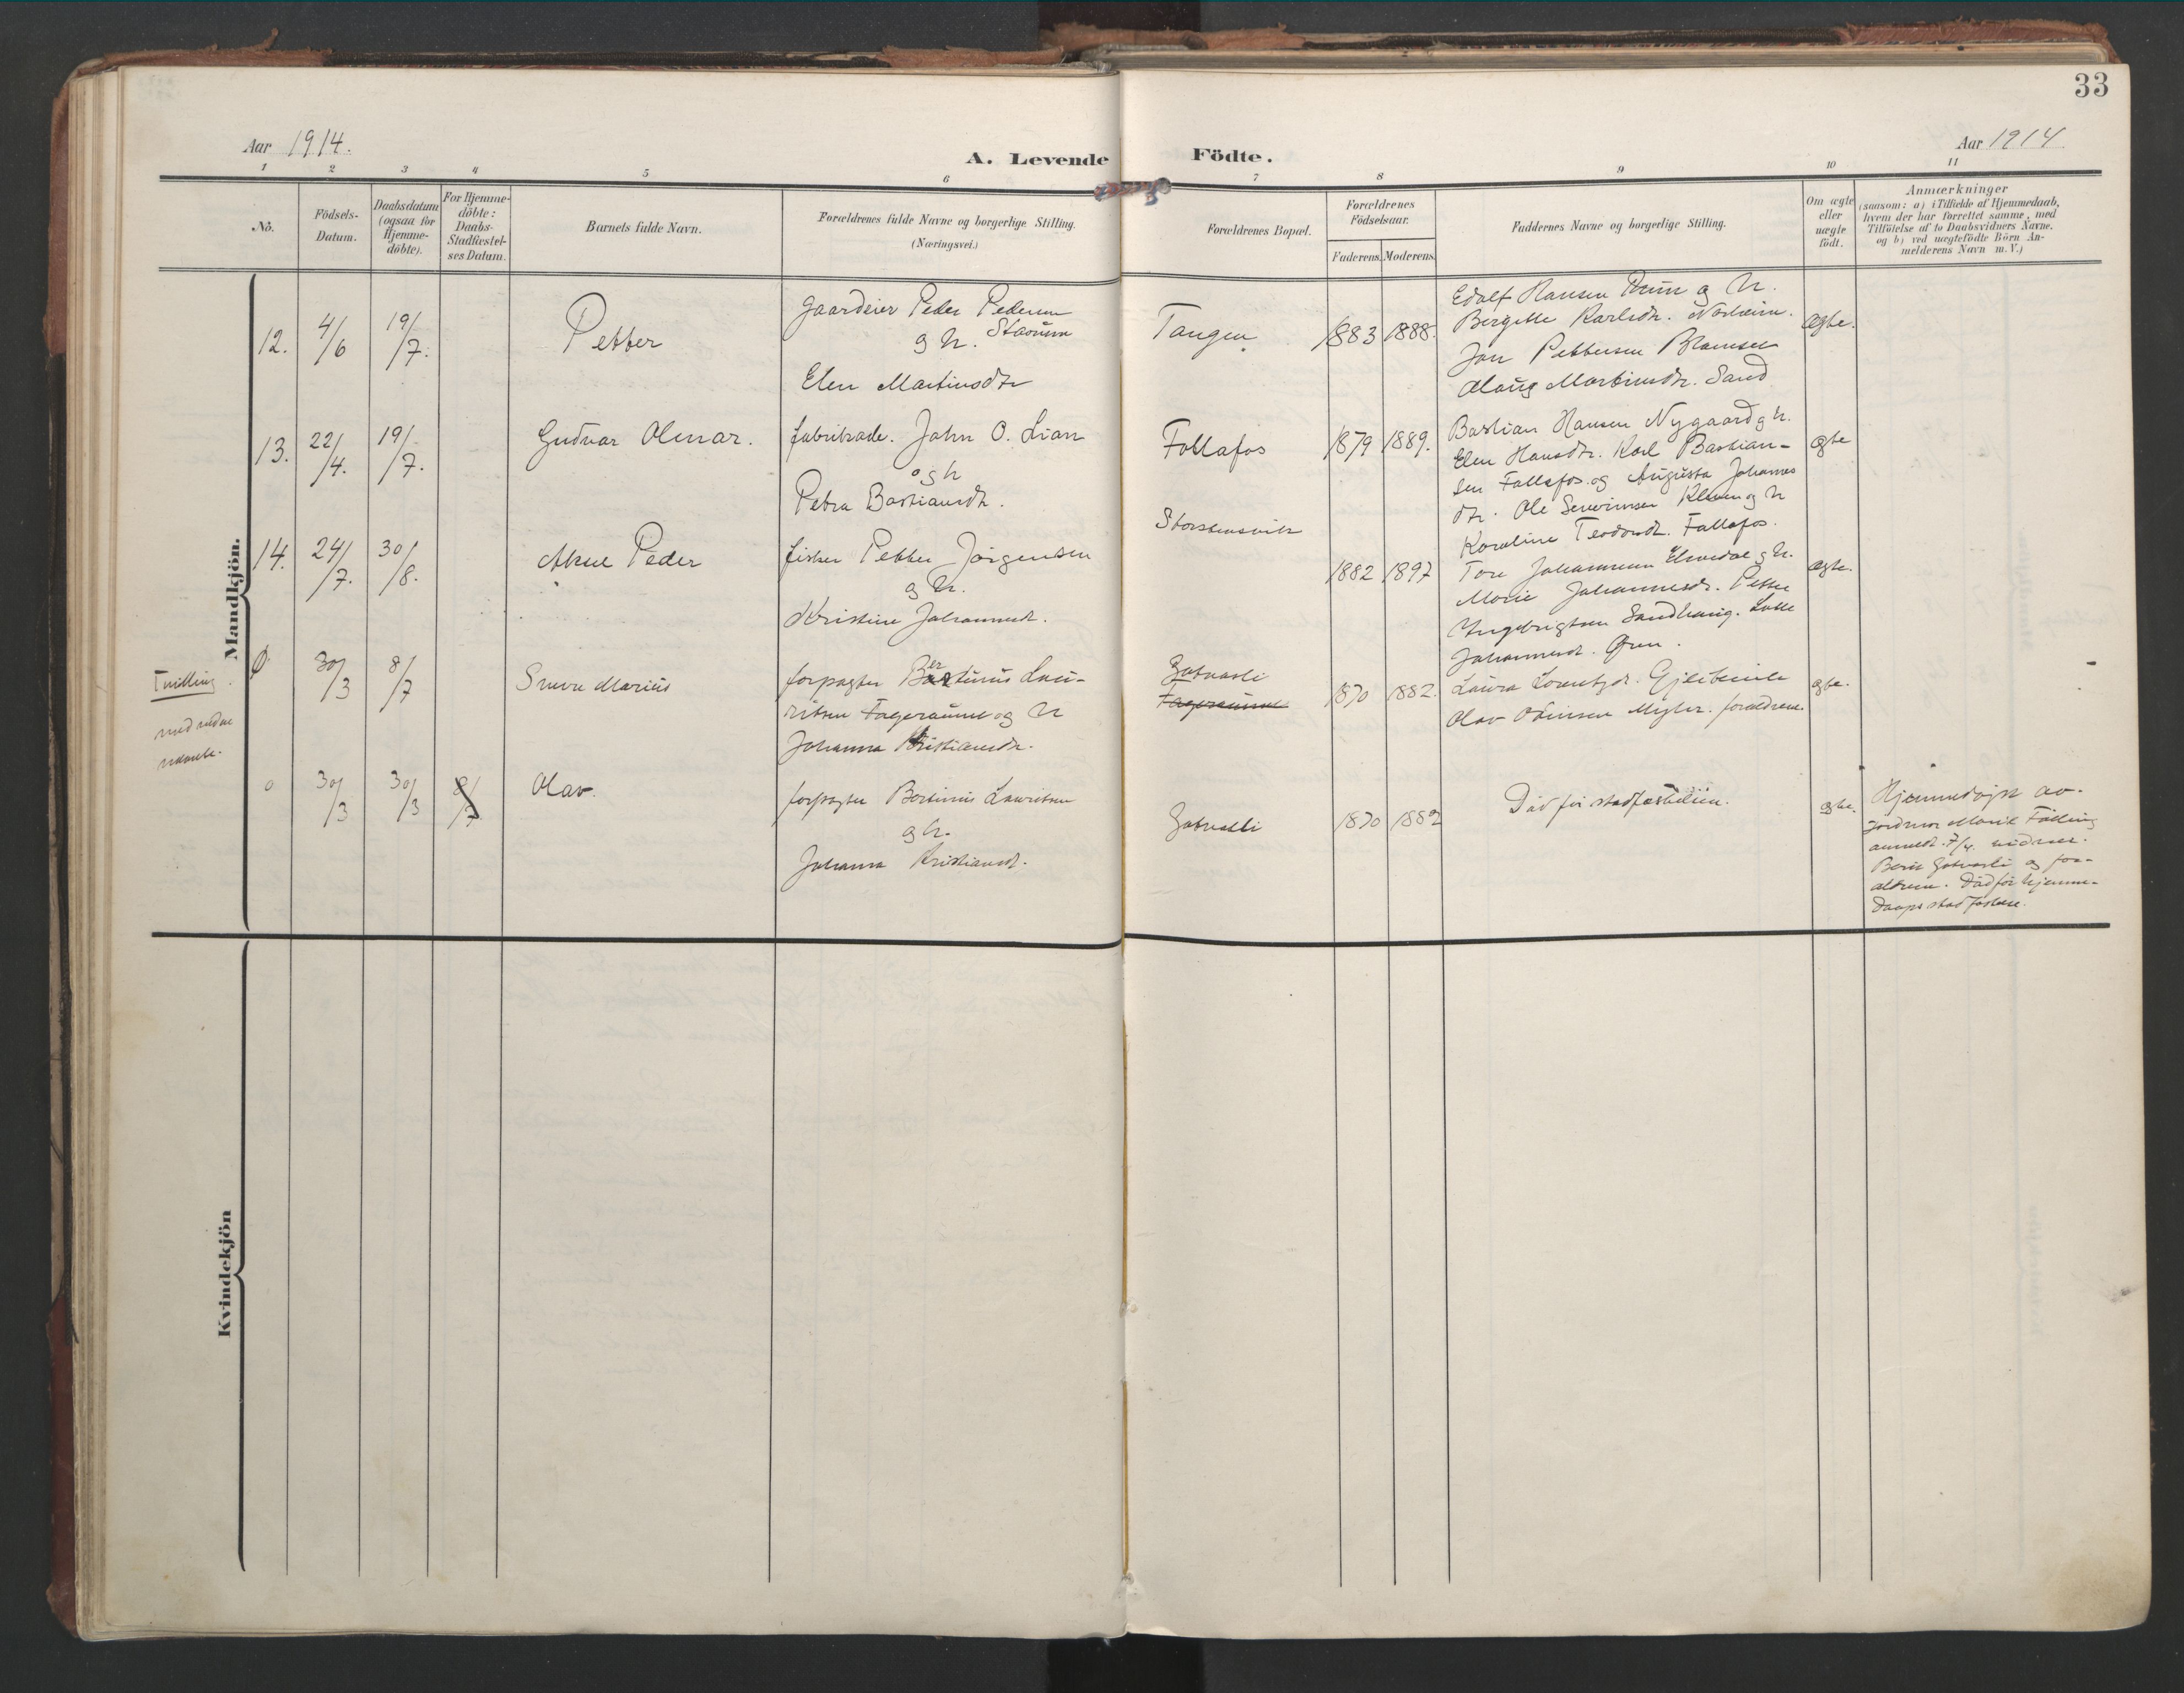 33
Aar 1914.
A. Levende Födte.
Aar 1914
1 2 3 4 5 6 7 8 9 10 11
No.
Födsels-
Datum.
Daabsdatum
(ogsaa för
Hjemme-
döbte).
For Hjemme-
döbte:
Daabs-
Stadfæstel-
ses Datum.
Barnets fulde Navn.
Forældrenes fulde Navne og borgerlige Stilling.
(Næringsvei.)
Forældrenes Bopæl.
Forældrenes
Födselsaar.
Faderens. Moderens.
Faddernes Navne og borgerlige Stilling.
Om ægte
eller
uægte
födt.
Anmærkninger
(saasom: a) i Tilfælde af Hjemmedaab,
hvem der har forrettet samme, med
Tilföielse af to Daabsvidners Navne.
og b) ved uægtefödte Börn An-
melderens Navn m. V.)
Mandkjön.
12. 4/6 19/7.
Petter
Gaardeier Peder Pedersen
og h.
Elen Martinsdtr
Tangen
1883 1888.
Edolf Hansen og h.
Bergitte Karlsdtr.
Jon Pettersen
Martinsdtr. Sand
ægte.
13. 22/4. 19/7.
Gudvar Olmar.
fabrikarb. John O. Lian
og h
Petra Bastiansdtr.
Follafos
1879 1889.
Bastian Hansen Nygaard og h.
Elen Hansdtr. Karl Bastian-
sen Follafos og Augusta Johannes
dtr. Ole Severinsen og h
Karoline Teodorsdtr. Follafos.
ægte
14. 24/7. 30/8.
Peder
fisker Petter Jörgensen
og h.
Kristine Johannesdtr.
Storstensvik
1882 1897
Tore Johannesen og h.
Marie Johannesdtr. Petter
Ingebrigtsen Sandhaug.
Johannesdtr.
ægte.
Tvilling
med
30/3 8/7
Sverre Marius
forpagter Bertinus Lau-
ritsen og h
Johanna Kristiansdtr.
1870 1882.
Laura Lorentsdtr.
Olav forældrene.
ægte.
0 30/3 30/3 8/7
Olav.
forpagter Bertinus Lauritsen
og h.
Johanna Kristiansdtr.
1870 1882
Död för stadfæstelsen.
ægte.
Hjemmedöpt av
jordmor Marie Fölling
anmeldt 7/4.
og for-
ældrene. Död för hjemme-
daaps stadfæstelse.
Kvindekjön